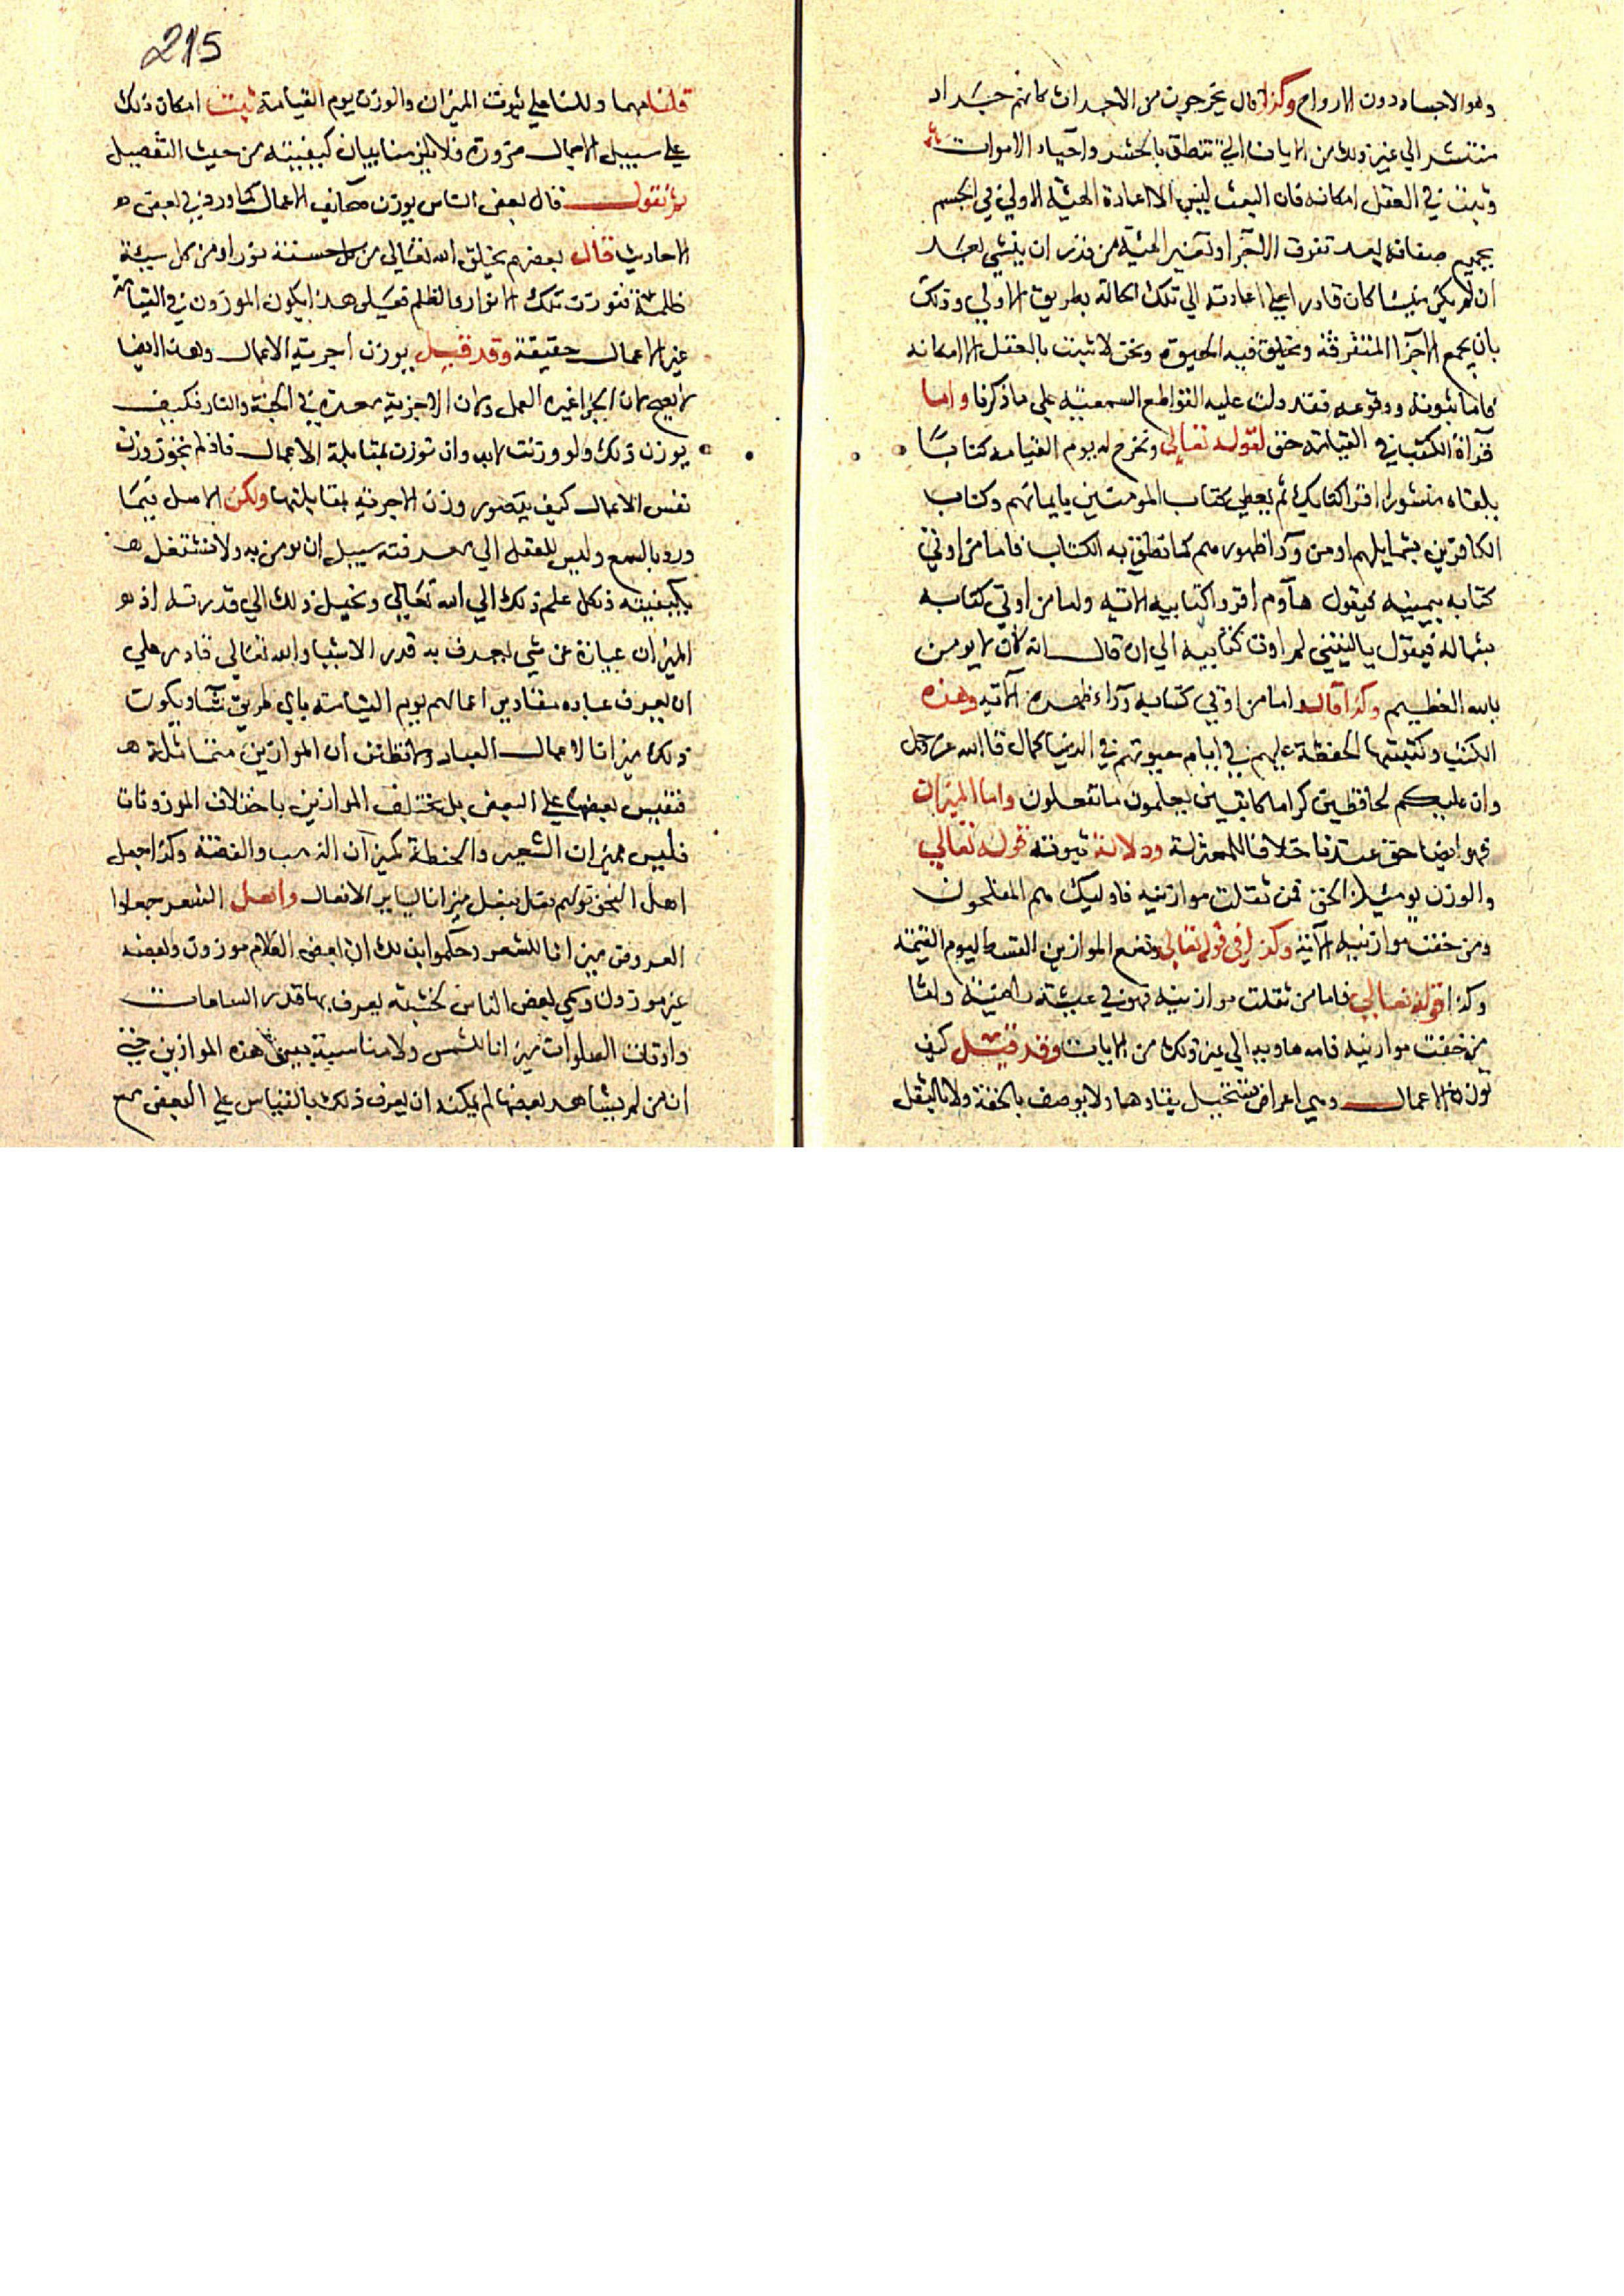 وهو الاجساد دون الارواح وكذا قال يخرجون من الاجداث كانهم جراد
منتشر الي غير ذلك من الايات التي تنطق بالحشر واحياء الاموات
وثبت في العقل امكانه فان البعث ليس الا اعادة الهيئة الاولي في الجسم
بجميع صفاته بعد تفرق الاجزا وتغير الهيئة من قدر ان ينشي بعد
ان لم يكن منشا كان قادرا علي اعادته الي تلك الحالة بطريق الاولي وذلك
بان يجمع الاجزا المتفرقة ويخلق فيه الحيوة ونحن لا نثبت بالعقل الا امكانه
فاما ثبوته ووقوعه فقد دلت عليه القواطع السمعية علي ما ذكرنا واما
قراة الكتب في القيامة حق لقوله تعالي ونخرج له يوم القيامة كتابا
يلقاه منشورا اقرا كتابك ثم يعطي كتاب المومنين بايمانهم وكتاب
الكافرين بشمايلهم او من ورا ظهورهم كما نطق به الكتاب فاما من اوتي
كتابه بيمينه فيقول هاوم اقروا كتابيه الاتية واما من اوتي كتابه
بشماله فيقول يا ليتني لم اوت كتابيه الي ان قال انه كان لا يومن
بالله العظيم وكذا قال واما من اوتي كتابه وراء ظهره الاتيه وهذه
الكتب وكتبتها الحفظة عليهم في ايام حيوتهم في الدنيا كمال قا الله عز وجل
وان عليكم لحافظين كراما كاتبين يعلمون ما تفعلون واما الميزان
فهو ايضا حق عندنا خلافا للمعتزلة ودلالة ثبوته قوله تعالي
والوزن يومئذ الحق فمن ثقلت موازينه فاوليك هم المفلحون
ومن خفت موازينه الاية وكذا في قوله تعالي ونضع الموازين القسط ليوم القيمة
وكذا قوله تعالي فاما من ثقلت موازينه فهو في عيشة راضية واما
من خفت موازينه فامه هاويه الي غير ذلك من الايات وقد قيل كيف
توزن الاعمال وهي اعراض يستحيل بقاوها ولا يوصف بالخفة ولا بالثقل
215
قلنا مهما دللنا علي ثبوت الميزان والوزن يوم القيامة ثبت امكان ذلك
علي سبيل الاجمال ضرورة فلا يلزمنا بيان كيفيته من حيث التفصيل
ثم نقول قال بعض الناس يوزن صحايف الاعمال كما ورد في بعض
الاحاديث قال بعضهم يخلق الله تعالي من كل حسنة نورا ومن كل سيئة
ظلمة فتوزن تلك الانوار والظلم فعلي هذا يكون الموزون في القيامة
غير الاعمال حقيقة وقد قيل يوزن اجزية الاعمال وهذا ايضا
لا يصح لان الجزا غير العمل ولان الاجزية معدة في الجنة والنار فكيف
يوزن ذلك ولو وزنت لابد وان توزن بمقابلة الاعمال فاذا لم نجوز وزن
نفس الاعمال كيف يتصور وزن الاجزية بمقابلتها ولكن الاصل فيما
ورد بالسمع وليس للعقل الي معرفته سبيل ان نومن به ولا نشتغل
بكيفيته ونكل علم ذلك الي الله تعالي ونحيل ذلك الي قدرته اذ
الميزان عبارة عن شي يعرف به قدر الاشيا والله تعالي قادر علي
ان يعرف عباده مقادير اعمالهم يوم القيامة باي طريق شا ويكون
ذلك ميزانا لاعمال العباد ولا تظنن ان الموازين متماثلة
فتقيس بعضها علي البعض بل تختلف الموازين باختلاف الموزونات
فليس ميزان الشعير والحنطة كميزان الذهب والفضة وكذا جعل
اهل النحو قولهم فعل يفعل ميزانا لساير الافعال واهل الشعر جعلوا
العروض ميزانا للشعر وحكموا بذلك ان بعض الكلام موزون وبعضه
غير موزون وحكي بعض الناس خشبة يعرف بها قدر الساعات
واوقات الصلوات ميزانا للشمس ولا مناسبة بين هذه الموازين حتي
ان من لم يشاهد بعضها لم يمكنه ان يعرف ذلك بالقياس علي البعض مع